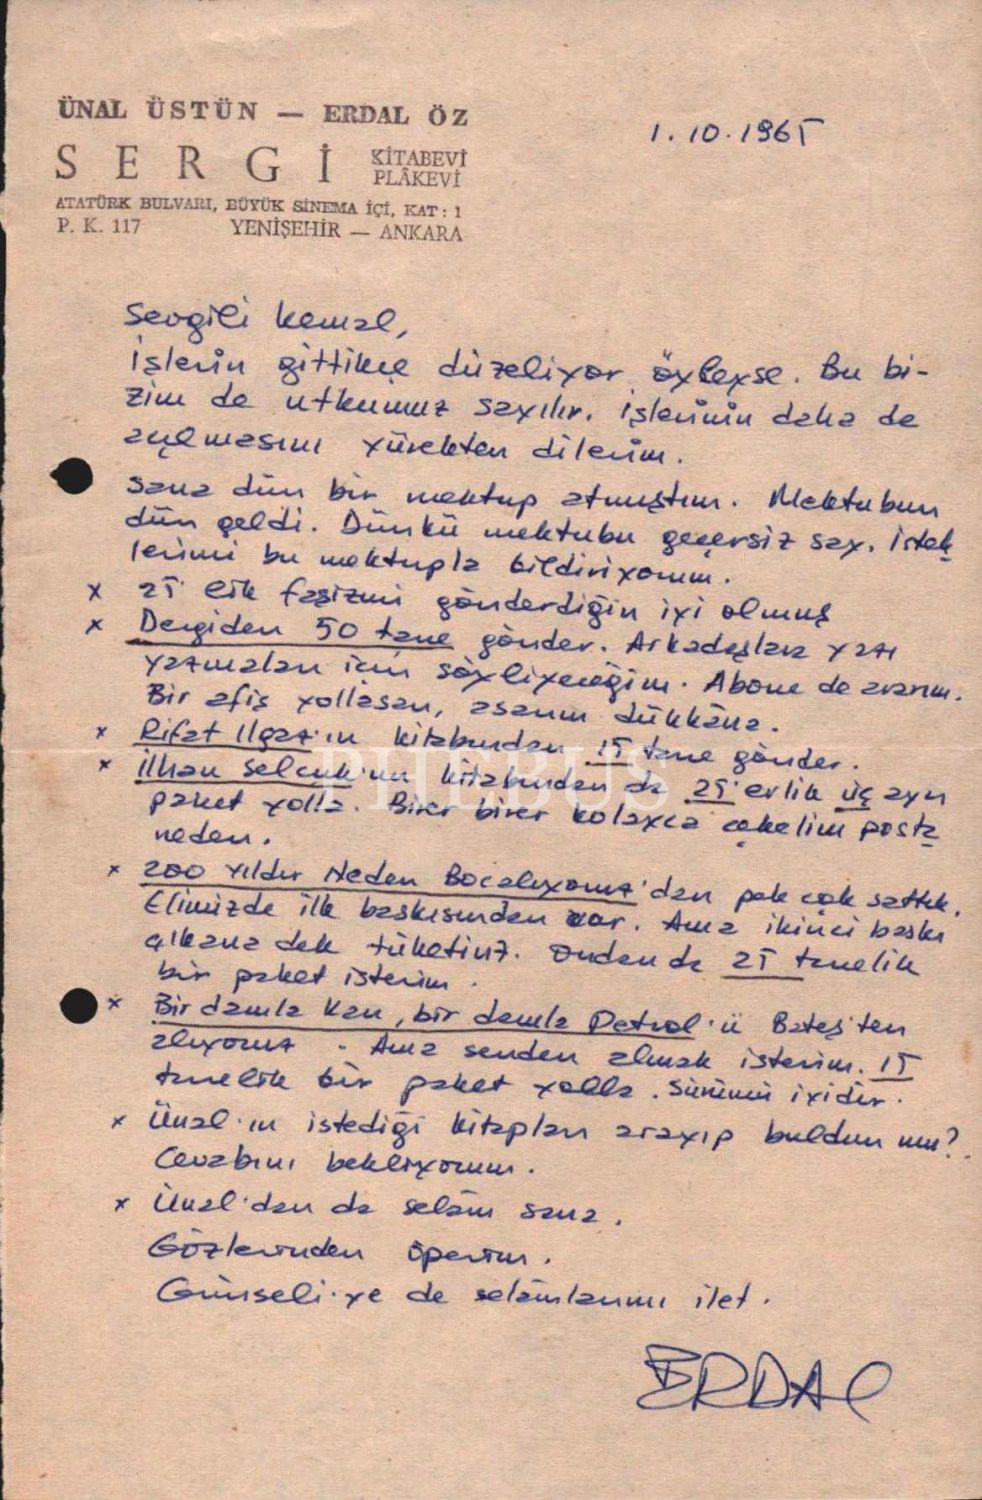 ÜNAL ÜSTÜN — ERDAL ÖZ
1.10.1965
SERGİ KİTABEVİ
PLÂKEVİ
ATATÜRK BULVARI, BÜYÜK SİNEMA İÇİ, KAT : 1
P. K. 117 YENİŞEHİR — ANKARA
Sevgili Kemal,
İşlerin gittikçe düzeliyor öyleyse. Bu bi-
zim de utkumuz sayılır. İşlerinin daha da
açılmasını yürekten dilerim.
Sana dün bir mektup atmıştım. Mektubun
dün geldi. Dünkü mektubu geçersiz say. İstek
lerimi bu mektupla bildiriyorum.
x 25' lik faşizmi gönderdiğin iyi olmuş
x Dergiden 50 tane gönder. Arkadaşlara yazı
yazmaları için söyliyeceğim. Abone de ararım.
Bir afiş yollasan, asarım dükkâna.
x Rifat Ilgaz'ın kitabından 15 tane gönder.
x İlhan Selçuk'un kitabından da 25'erlik üç ayrı
paket yolla. Birer birer kolayca çekelim posta
neden.
x 200 Yıldır Neden Bocalıyoruz'dan pek çok sattık.
Elimizde ilk baskısından var. Ama ikinci baskı
çıkana dek tüketiriz. Ondan da 25 tanelik
bir paket isterim.
x Bir damla kan, bir damla Petrol'ü Bateş'ten
alıyoruz. Ama senden almak isterim. 15
tanelik bir paket yolla. Sürümü iyidir.
x Ünal'ın istediği kitapları arayıp buldun mu?
Cevabını bekliyorum.
x Ünal'dan da selâm sana.
Gözlerinden öperim.
Günseli'ye de selâmlarımı ilet.
ERDAL
PHEBUS